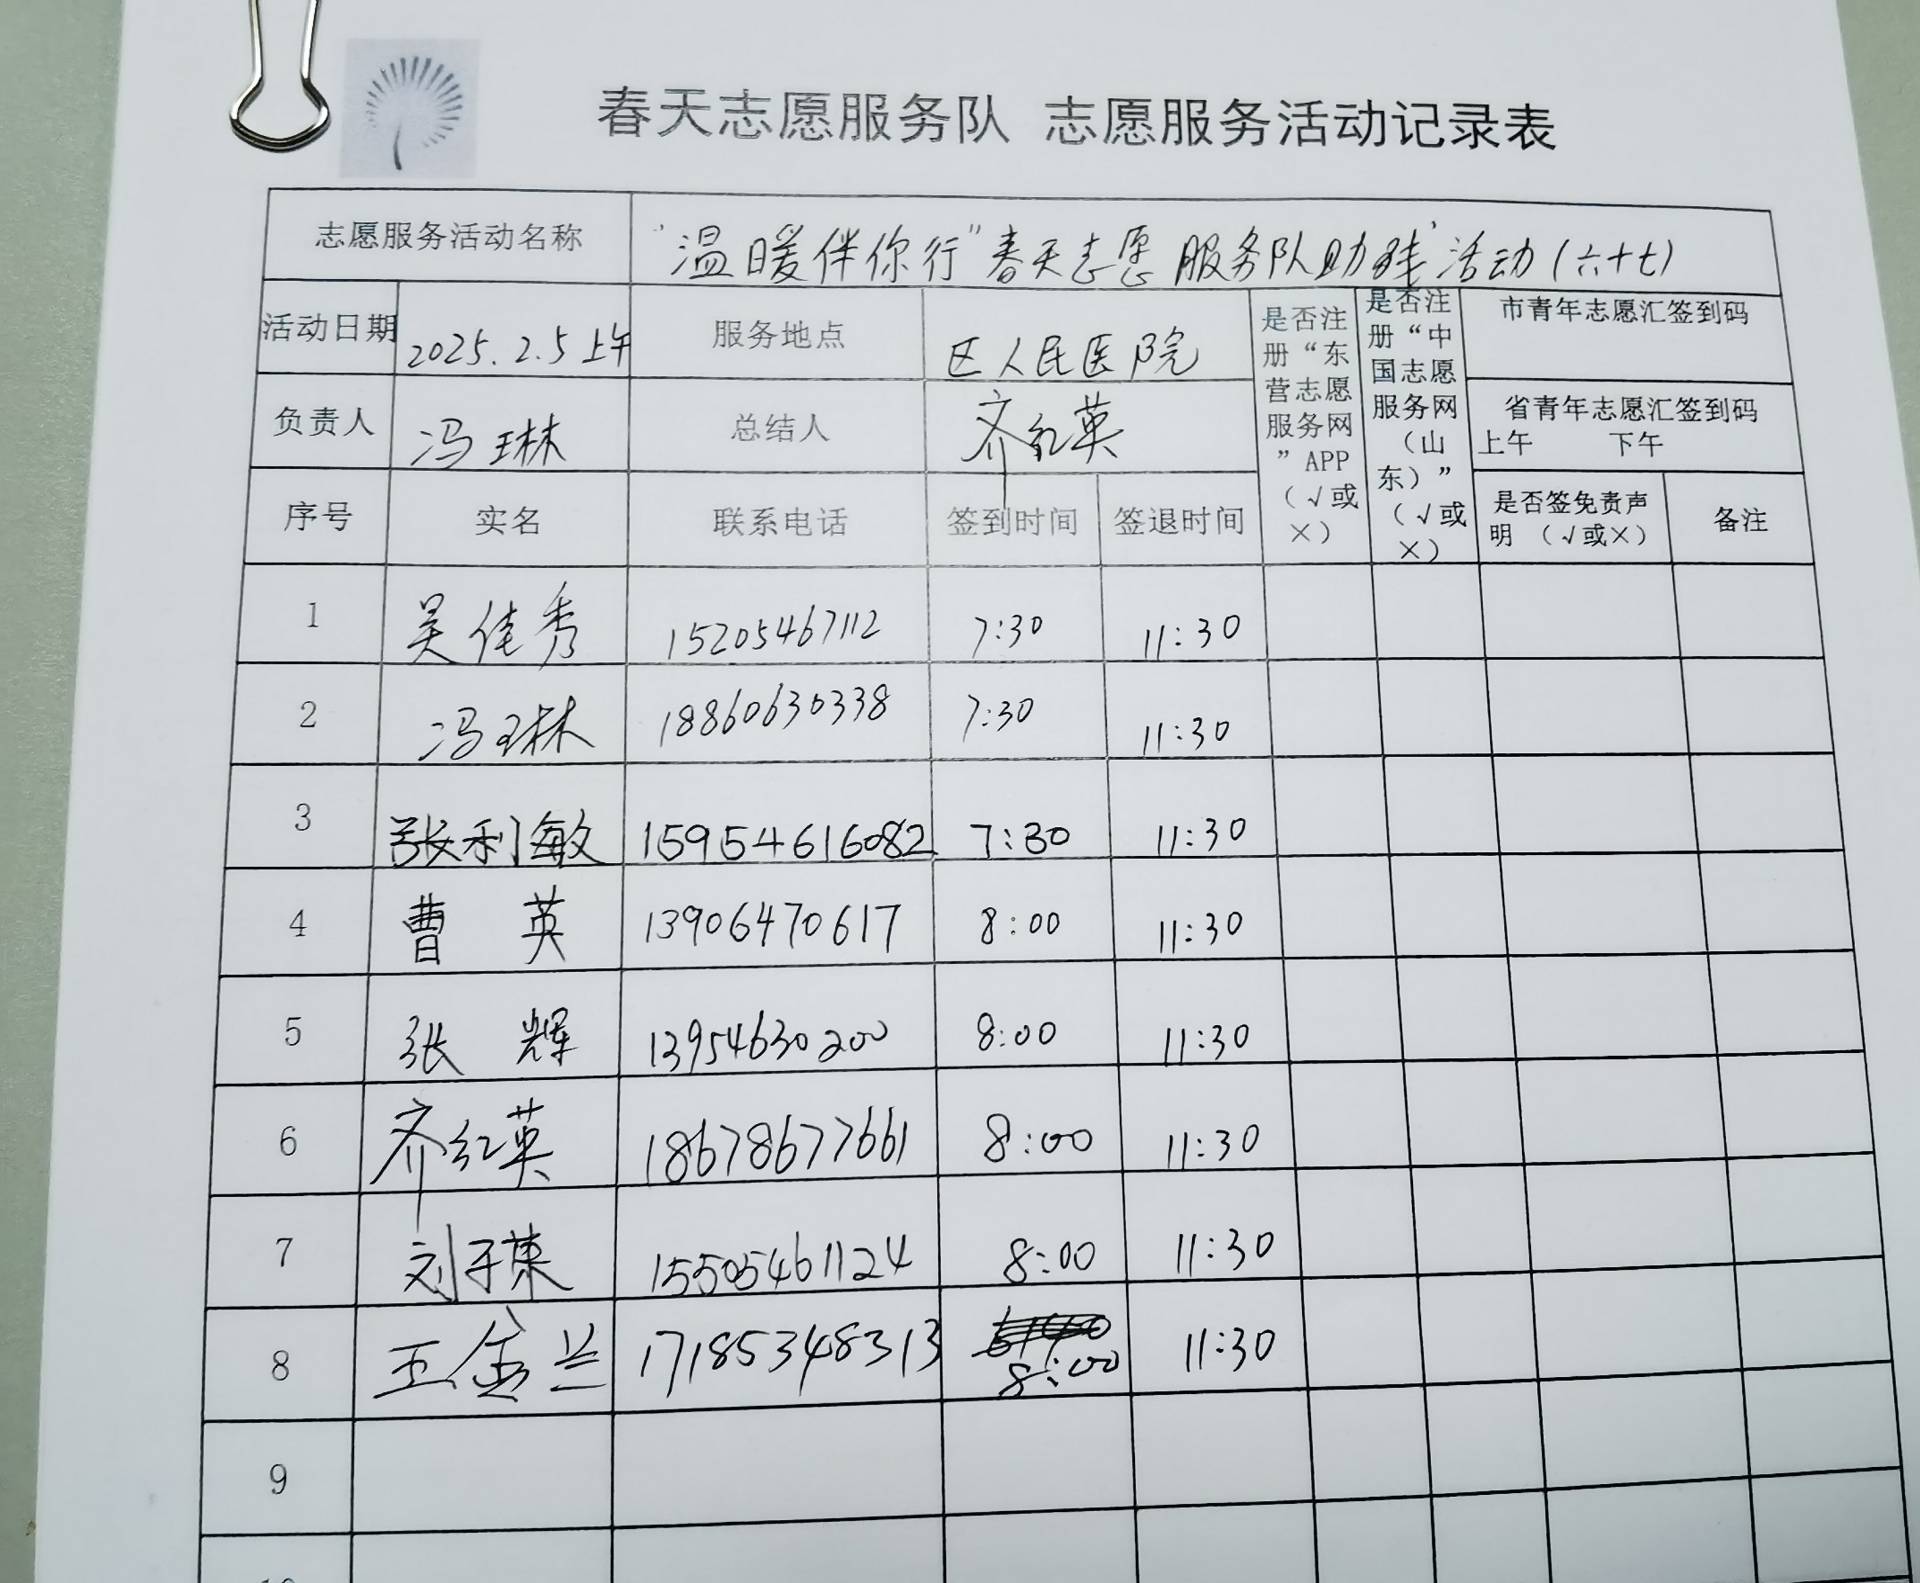 春天志愿服务队 志愿服务活动记录表
志愿服务活动名称 “温暖伴你行”春天志愿服务队助残”活动(六十七)
活动日期 2025.2.5上午 服务地点 区人民医院
是否注册“东营志愿服务网”APP（√或×）
是否注册“中国志愿服务网（山东）”（√或×）
市青年志愿汇签到码
负责人 冯琳 总结人 齐红英
省青年志愿汇签到码
上午 下午
序号 实名 联系电话 签到时间 签退时间 是否签免责声明（√或×） 备注
1 吴佳秀 15205467112 7:30 11:30
2 冯琳 18860630338 7:30 11:30
3 张利敏 15954616082 7:30 11:30
4 曹英 13906470617 8:00 11:30
5 张辉 13954630200 8:00 11:30
6 齐红英 18678677661 8:00 11:30
7 刘子 15505461124 8:00 11:30
8 王金兰 17185348313 8:00 11:30
9